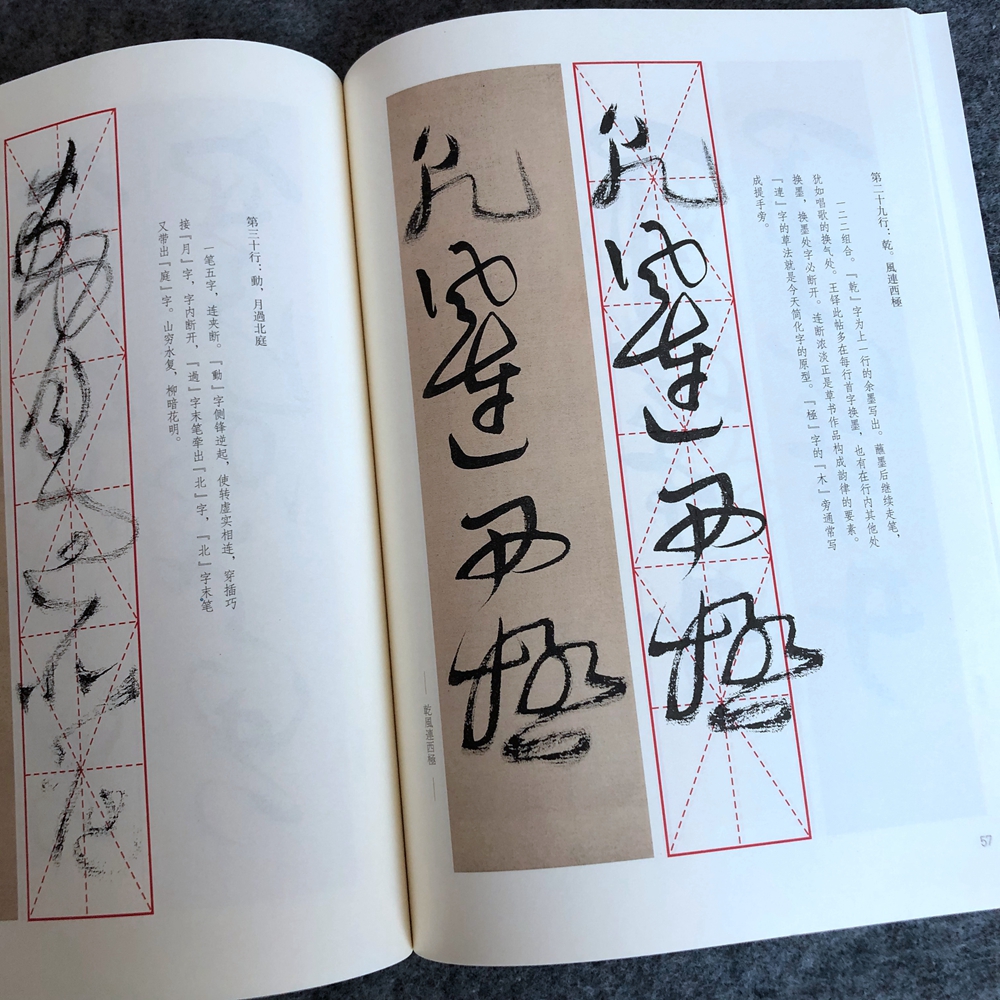 第二十九行：乾。風連西極
一二二组合。『乾』字为上一行的余墨写出。蘸墨后继续走笔，
犹如唱歌的换气处。王铎此帖多在每行首字换墨，也有在行内其他处
换墨，换墨处字必断开。连断浓淡正是草书作品构成韵律的要素。
『連』字的草法就是今天简化字的原型。『極』字的『木』旁通常写
成提手旁。
乾風連西極
乾風連西極
乾風連西極
57
第三十行：動，月過北庭
一笔五字，连夹断。『動』字侧锋逆起，使转虚实相连，穿插巧
接『月』字，字内断开，『過』字末笔牵出『北』字，『北』字末笔
又带出『庭』字。山穷水复，柳暗花明。
動月過北庭